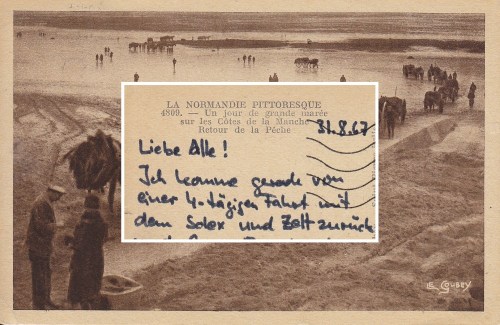 LA NORMANDIE PITTORESQUE
4809. — Un jour de grande marée
sur les Côtes de la Manche
Retour de la Pêche
31.8.67
Liebe Alle!
Ich komme gerade von
einer 4-tägigen Fahrt mit
dem Solex und Zelt zurück
E. Goubey